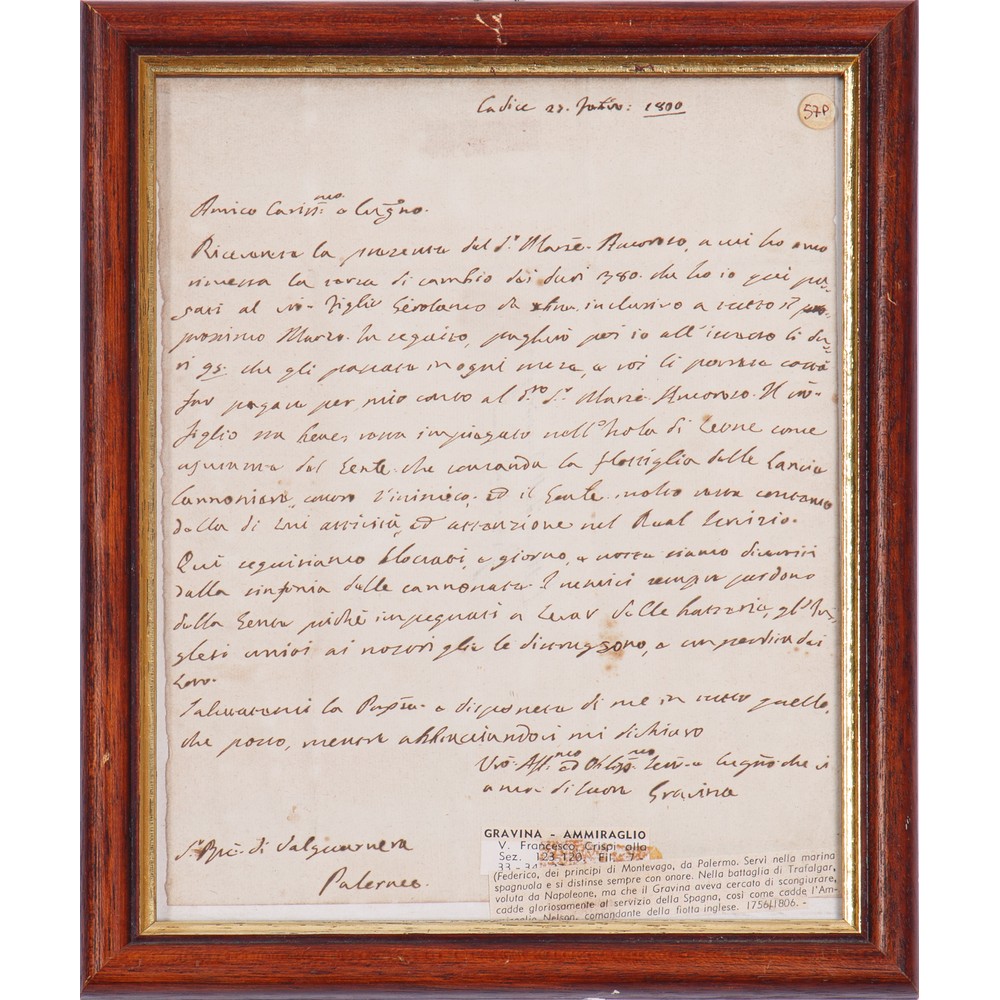 Cadice 27. 1800
57P
Amico Cariss.mo e Cug.no
Riceverete la presente dal S.r Amoroso, a cui ho anco
rimessa la terza di cambio dei duri 1380. che ho io qui pa-
gati al vro. figlio Gerolamo da inclusivo a tutto il
prossimo Marzo. In seguito, pagherò poi io all'istesso li du-
ri 95. che gli passate in ogni mese, e voi li potrete costà
far pagare per mio conto al S.r Amoroso. Il vro.
figlio sta bene, trova impiegato nell'Isola di Leone come
del che comanda la flottiglia delle Lancie
Cannoniere contro l'inimico, ed il molto contento
della di lui attività, ed attenzione nel Real Servizio.
Qui seguitiamo bloccati, e giorno, e notte siamo divertiti
dalla sinfonia delle cannonate. I nemici sempre perdono
della Gente poiché impegnati a levar delle batterie, gl'In-
glesi uniti ai nostri glie le distruggono, e con perdita dei
loro.
Salutatemi la e disponete di me in tutto quello,
che posso, mentre abbracciandovi mi dichiaro
Vro. Aff.mo ed Obblig.mo e Cug.no che vi
ama di cuore Gravina
S.r di Valguarnera
Palermo.
GRAVINA - AMMIRAGLIO
V. Francesco Crispi alla
Sez. 123-120, Fil. 7
33 - 34
(Federico, dei principi di Montevago, da Palermo. Servi nella marina
spagnuola e si distinse sempre con onore. Nella battaglia di Trafalgar,
voluta da Napoleone, ma che il Gravina aveva cercato di scongiurare,
cadde gloriosamente al servizio della Spagna, così come cadde l'Am-
miraglio Nelson, comandante della flotta inglese. 1756/1806. -